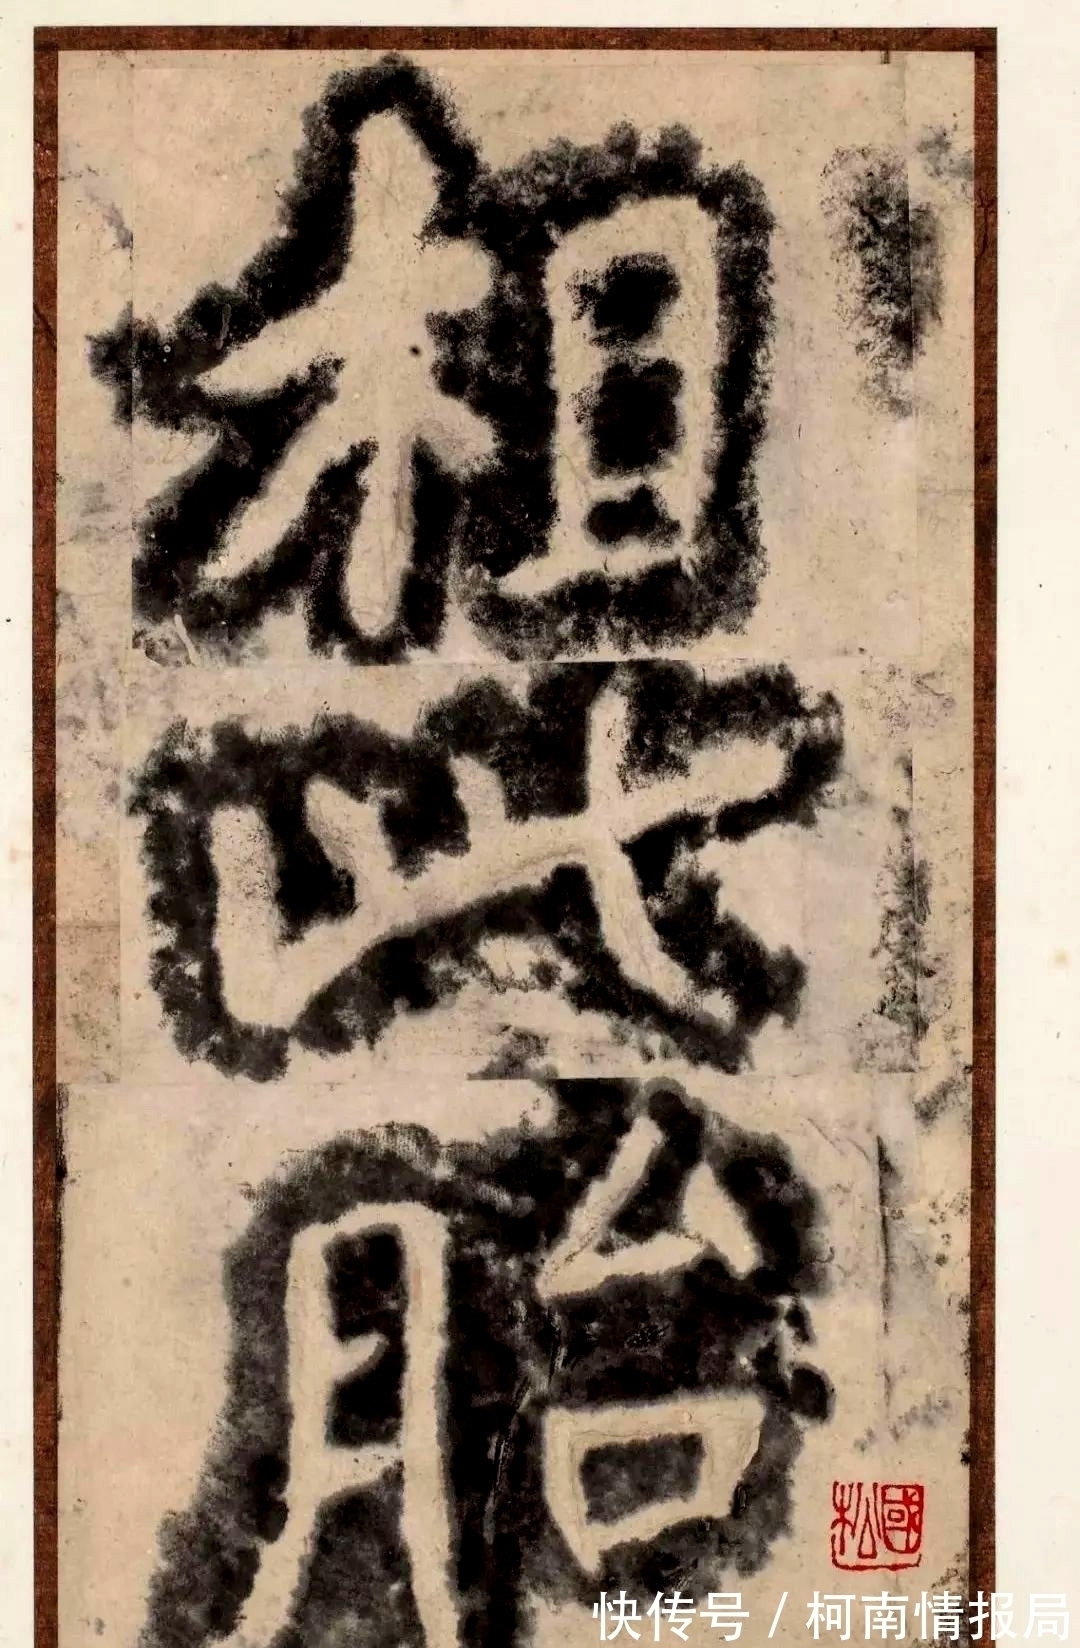 相
此
胎
國松
快传号 / 柯南情报局